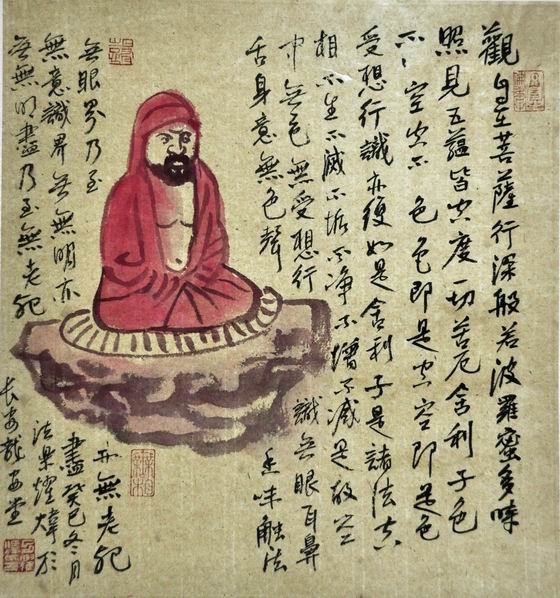 觀自在菩薩行深般若波羅蜜多時
照見五蘊皆空度一切苦厄舍利子色
不、空空不色色即是空空即是色
受想行識亦復如是舍利子是諸法空
相不生不滅不垢不净不增不減是故空
中無色無受想行識無眼耳鼻
舌身意無色聲香味觸法
無眼界乃至
無意識界無無明亦
無無明盡乃至無老死
亦無老死
盡癸巳冬月
法果耀煒於
長安龍安堂